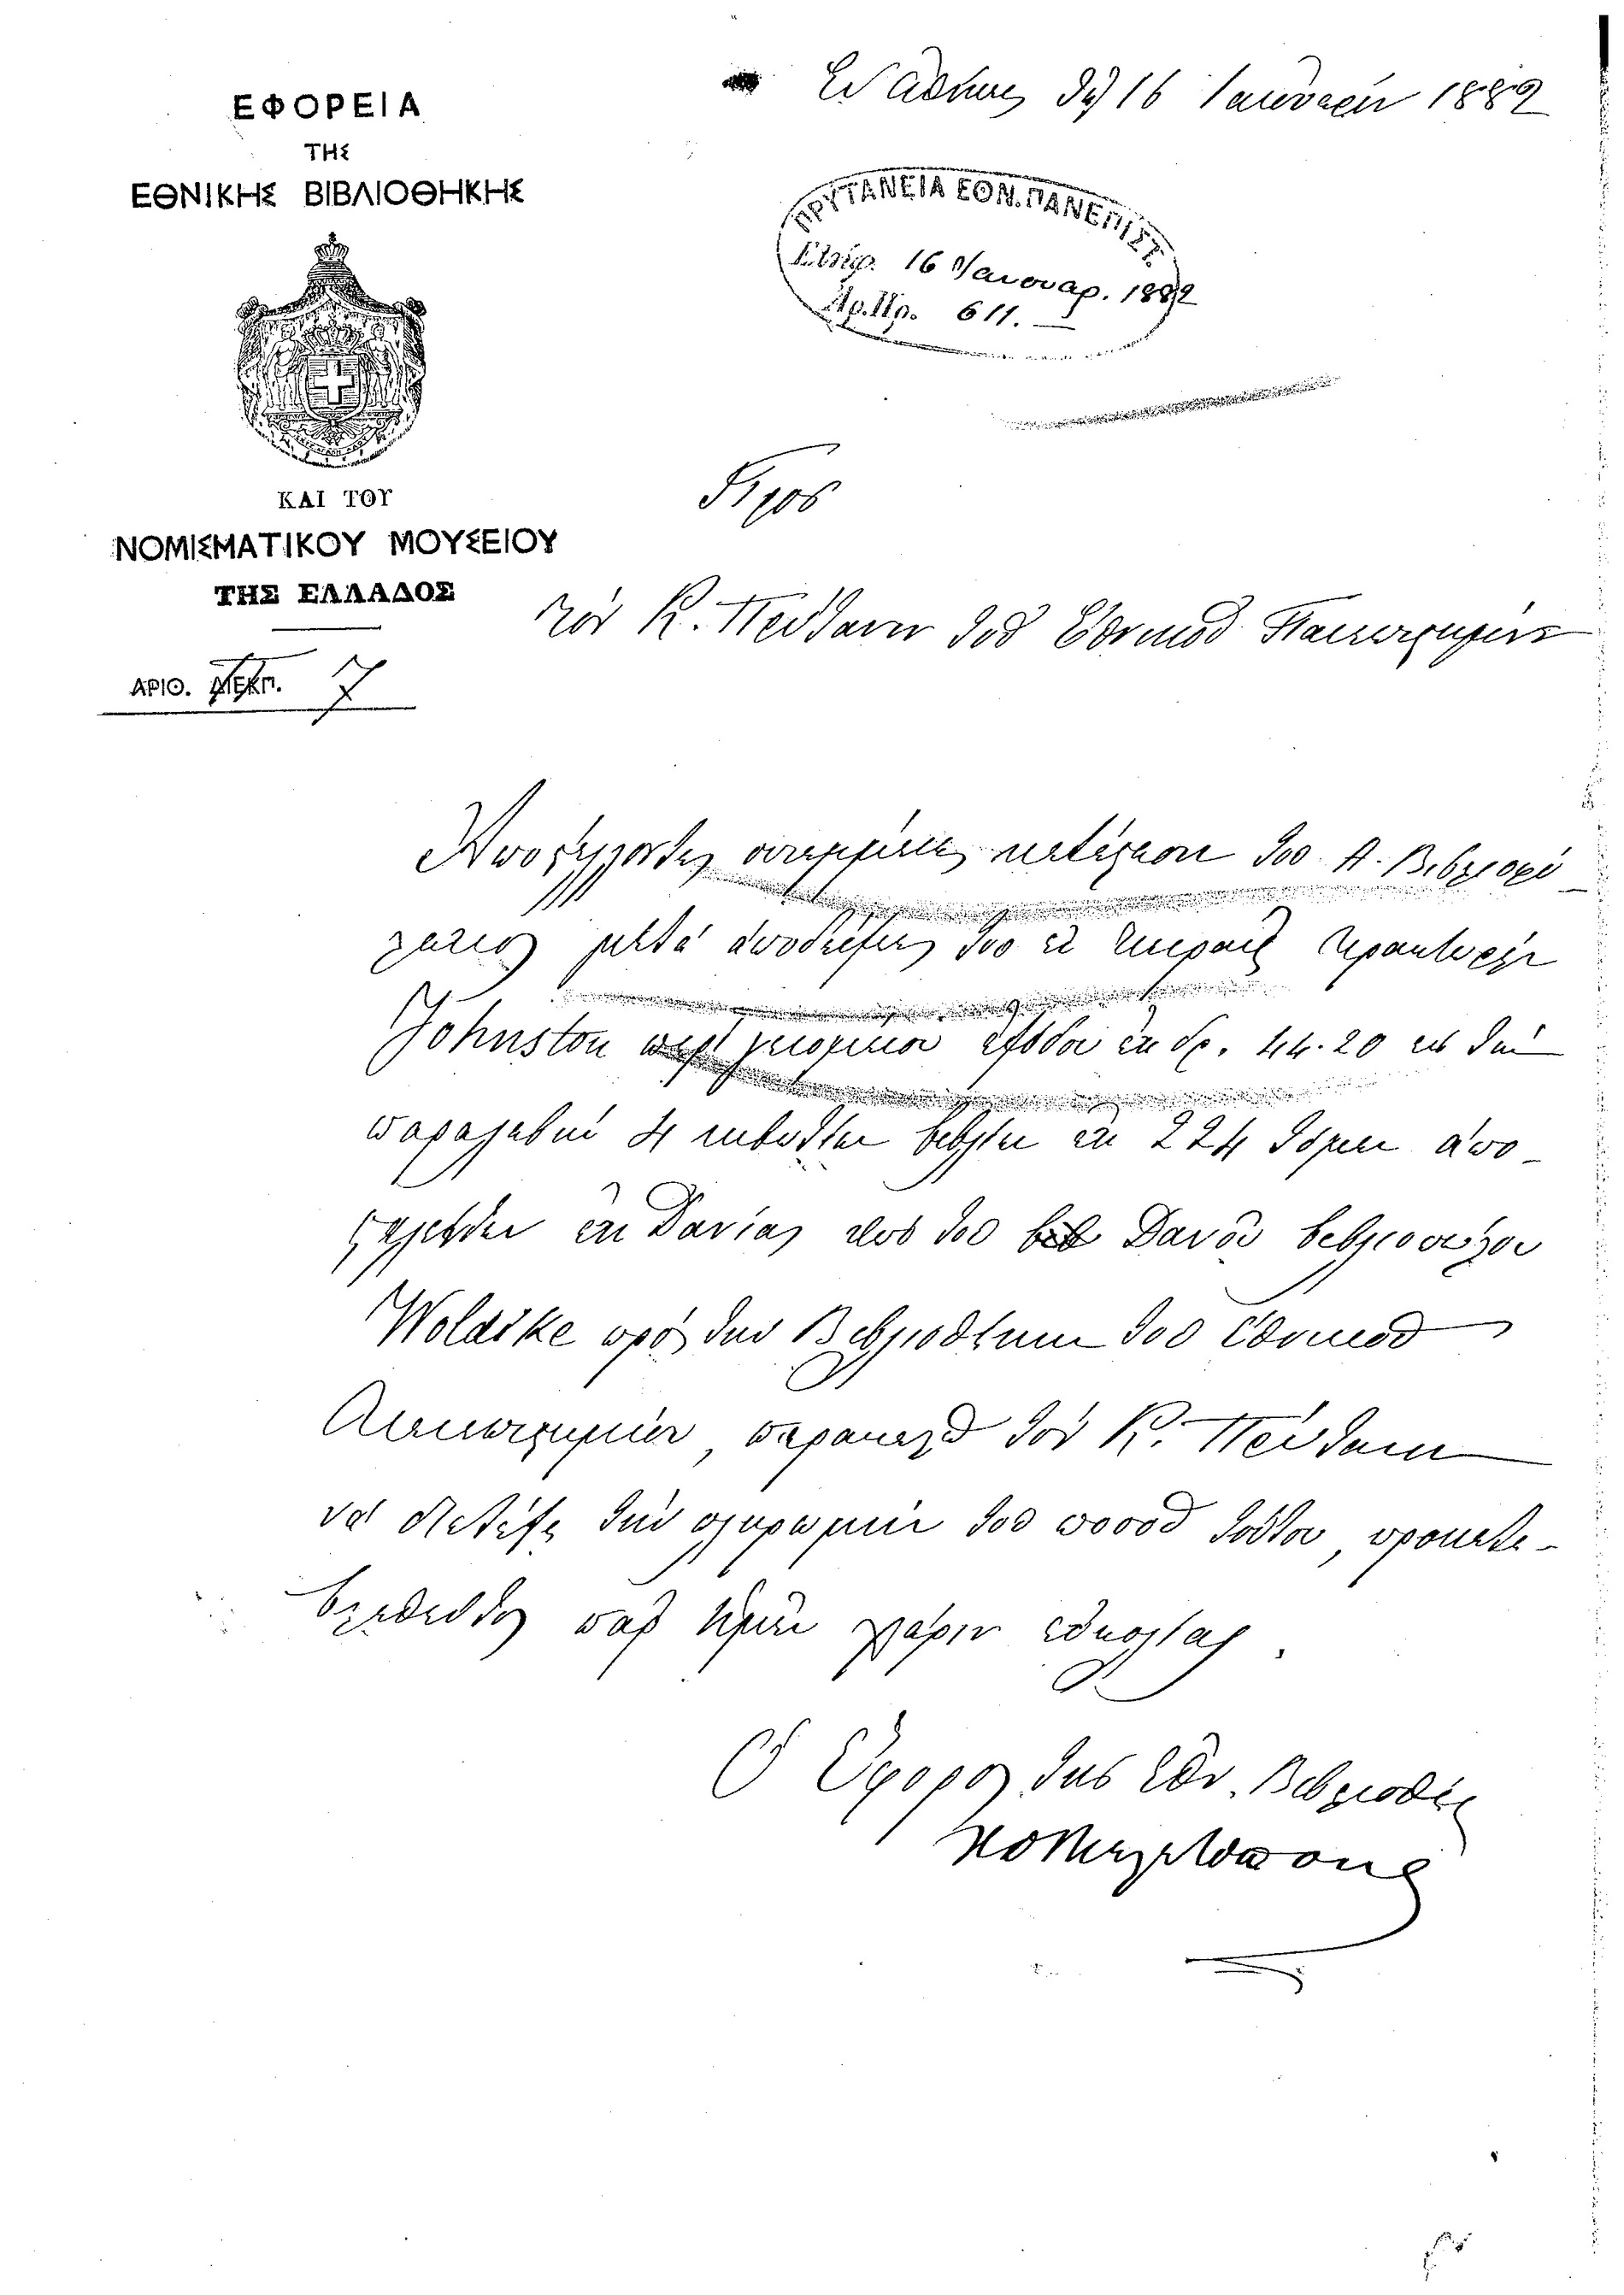 Ἐν Ἀθήναις τῇ 16 Ἰανουαρίου 1882
ΕΦΟΡΕΙΑ
ΤΗΣ
ΕΘΝΙΚΗΣ ΒΙΒΛΙΟΘΗΚΗΣ
ΠΡΥΤΑΝΕΙΑ ΕΘΝ. ΠΑΝΕΠΙΣΤ.
16 Ἰανουαρ. 1882
Ἀρ. Πρ. 611.
ΚΑΙ ΤΟΥ
ΝΟΜΙΣΜΑΤΙΚΟΥ ΜΟΥΣΕΙΟΥ
ΤΗΣ ΕΛΛΑΔΟΣ
ΑΡΙΘ. 7
Πρὸς
τὸν Κ. Πρύτανιν τοῦ Ἐθνικοῦ Πανεπιστημίου
Ἀποστέλλοντες κατάλογον τοῦ Α. Βιβλιοπώ-
μετὰ ἀποδείξεως τοῦ ἐν Πειραιεῖ πράκτορος
Johnston περὶ γενομένων ἐξόδων ἐκ δρ. 44.20 εἰς τὴν
παραλαβὴν 4 κιβωτίων βιβλίων ἐκ 224 τόμων ἀπο-
σταλέντων ἐκ Δανίας ὑπὸ τοῦ Δανοῦ βιβλιοπώλου
Woldike πρὸς τὴν Βιβλιοθήκην τοῦ Ἐθνικοῦ
Πανεπιστημίου, παρακαλῶ τὸν Κ. Πρύτανιν
νὰ διατάξῃ τὴν πληρωμὴν τοῦ ποσοῦ τούτου, προκατα-
βληθέντος παρ' ἡμῶν χάριν εὐκολίας.
Ὁ Ἔφορος τῆς Ἐθν. Βιβλιοθήκης